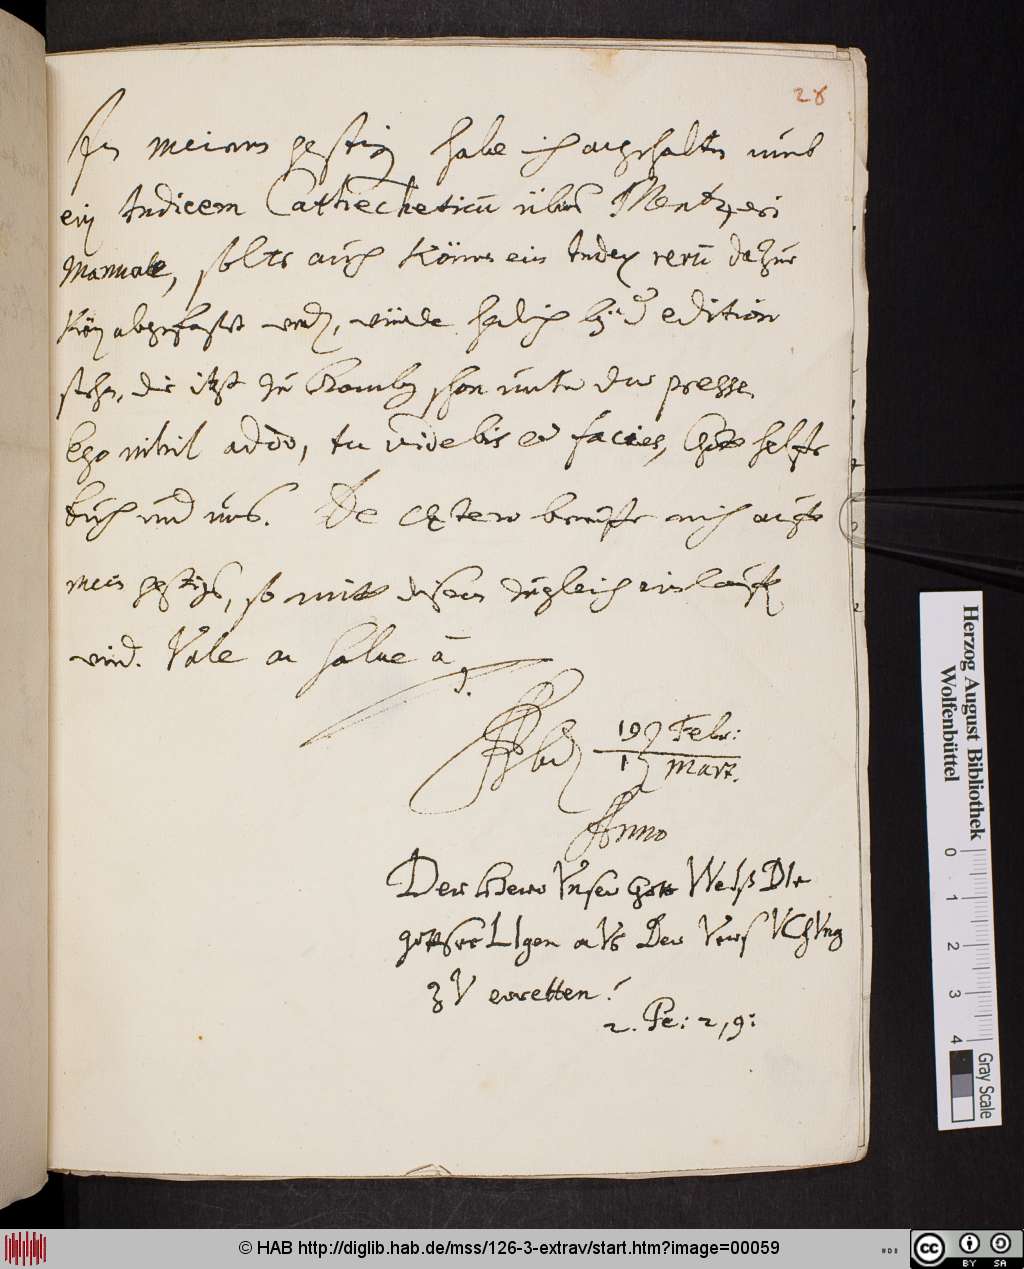 28
In meinem gestrigen habe ich angehalten umb
ein Indicem Catecheticu über Mentzeri
Manuale, solte auch könne ein Index rerū dazue
abgefasset werden, würde bey d edition
stehen, die itzt zu schon unter der presse.
Ego nihil addo, tu videbis et facies, Gott helffe
Euch und uns. De cætero beruffe mich auff
mein gestriges, so mitt diesem zugleich einlauffen
wird. Vale ac salve à
19 Febr:
1 Mart.
Anno
Der Herr Unser Gott WeIß DIe
gottseeLIgen aVs Der VersVChVng
zV erretten!
2. Pe: 2, 9:
Herzog August Bibliothek
Wolfenbüttel
0 1 2 3 4
Gray Scale
© HAB http://diglib.hab.de/mss/126-3-extrav/start.htm?image=00059
CC BY SA